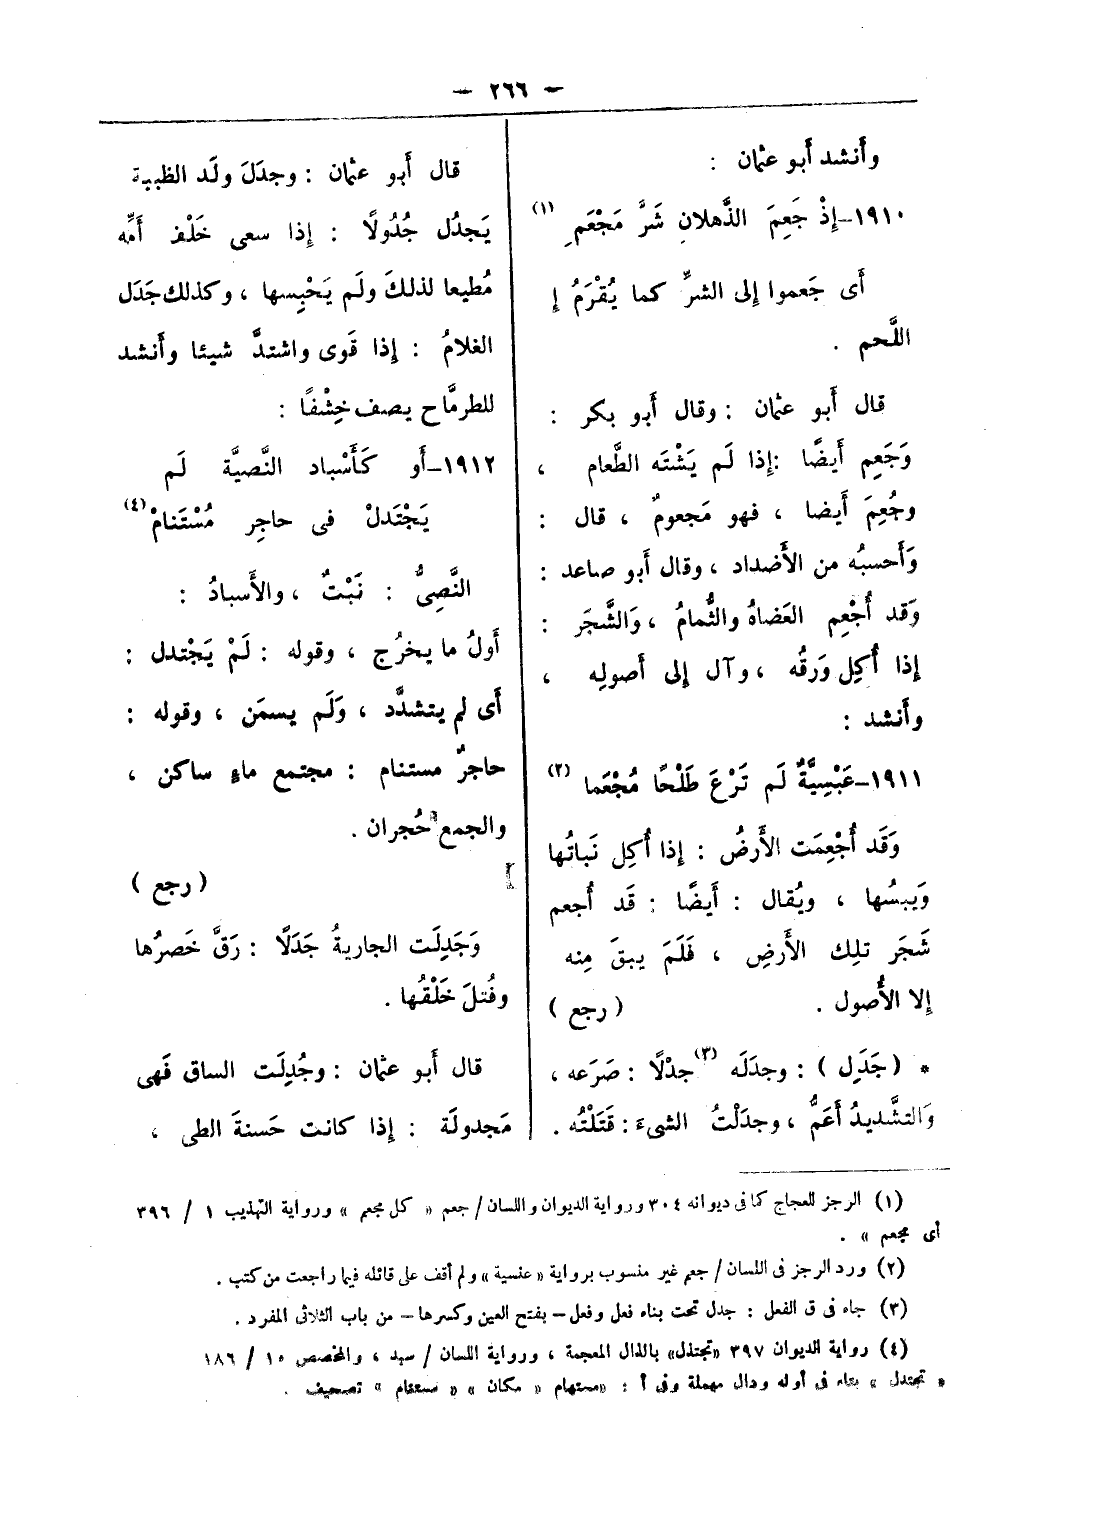 — ٢٦٦ —
وأَنشد أَبو عثمان :
١٩١٠–إِذْ جَعِمَ الذَّهلانِ شَرَّ مَجْعَمِ (١)
أَى جَعموا إِلى الشرِّ كما يُقْرَمُ إِ
اللَّحم .
قال أَبو عثمان : وقال أَبو بكر :
وَجَعِم أَيضًا :إِذا لَم يَشْتَه الطَّعام ،
وجُعِمَ أَيضا ، فهو مَجعومٌ ، قال :
وَأَحسبُه من الأَضداد ، وقال أَبو صاعد :
وَقد أُجْعِم العَضاهُ والثُّمامُ ، وَالشَّجَر :
إِذا أُكِل وَرقُه ، وآل إِلى أَصولِه ،
وأَنشد :
١٩١١–عَبْسِيَّةٌ لَم تَرْعَ طَلْحًا مُجْعَما (٢)
وَقَد أُجْعِمَت الأَرضُ : إِذا أُكِل نَباتُها
وَيبسُها ، ويُقال : أَيضًا : قَد أُجعم
شَجَر تلِك الأَرضِ ، فَلَمَ يبقَ مِنه
إِلا الأُصول . ( رجع )
* ( جَدَلِ ) : وجدَلَه (٣) جدْلًا : صَرَعه ،
وَالتشَّديدُ أَعَمُّ ، وجدَلْتُ الشىءَ : فَتَلْتُه .
قال أَبو عثمان : وجدَلَ ولَد الظبية
يَجدُل جُدُولًا : إِذا سعى خَلْف أُمِّه
مُطيعا لذلكَ ولَم يَحْبِسها ، وكذلك جَدَل
الغلامُ : إِذا قَوى واشتدَّ شيئا وأَنشد
للطرمَّاح يصف خِشْفًا :
١٩١٢–أَو كَأَسْباد النَّصيَّة لَم
يَجْتَدلْ فى حاجِر مُسْتَنامْ (٤)
النَّصِىُّ : نَبْتٌ ، والأَسبادُ :
أَولُ ما يخرُج ، وقوله : لَمْ يَجْتدل :
أَى لم يتشدَّد ، وَلَم يسمَن ، وقوله :
حاجرٌ مستنام : مجتمع ماءٍ ساكن ،
والجمع حُجران .
( رجع )
وَجَدِلَت الجاريةُ جَدَلًا : رَقَّ خَصرُها
وفُتلَ خَلْقُها .
قال أَبو عثمان : وجُدِلَت الساق فَهى
مَجدولَة : إِذا كانت حَسنةَ الطى ،
(١) الرجز للعجاج كما فى ديوانه ٣٠٤ ورواية الديوان واللسان / جعم « كل مجعم » ورواية التهذيب ١ / ٣٩٦
أى مجعم » .
(٢) ورد الرجز فى اللسان / جعم غير منسوب برواية « عنسية » ولم أقف على قائله فيما راجعت من كتب .
(٣) جاء فى ق الفعل : جدل تحت بناء فعل وفعل – بفتح العين وكسرها – من باب الثلاثى المفرد .
(٤) رواية الديوان ٣٩٧ «تجتذل» بالذال المعجمة ، ورواية اللسان / سبد ، والمخصص ١٥ / ١٨٦
« تجتدل » بتاء فى أوله ودال مهملة وفى أ : «مستهام « مكان » « مستنام » تصحيف .